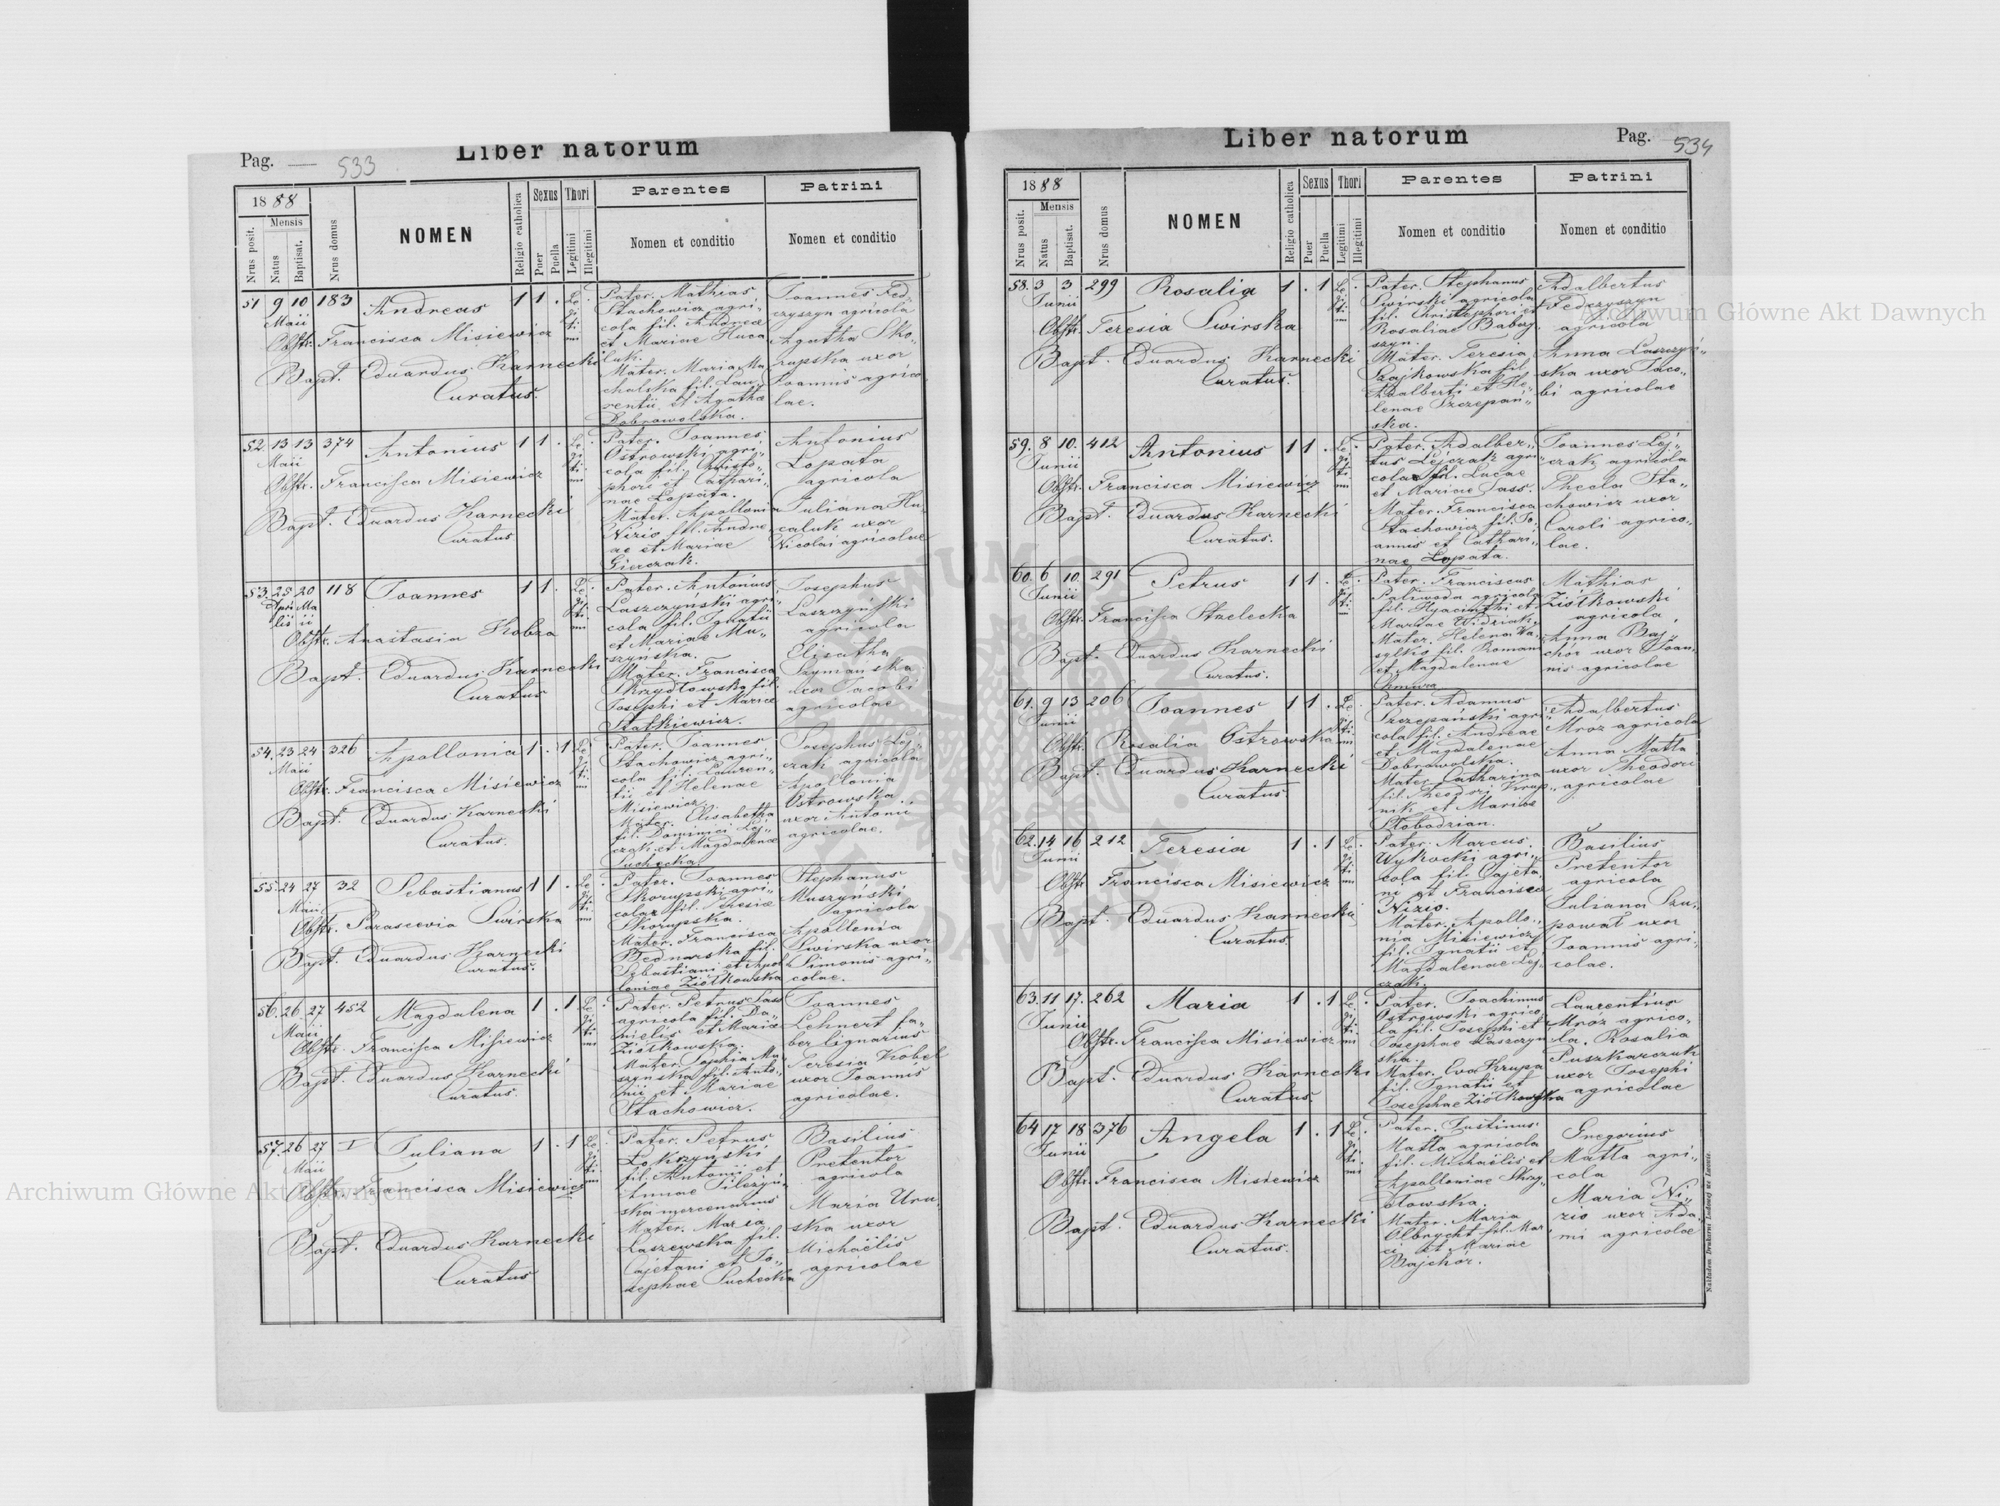 Pag. 533
Liber natorum
1888
Mensis
Nrus posit.
Natus
Baptisat.
Nrus domus
NOMEN
Religio catholica
Sexus
Puer
Puella
Thori
Legitimi
Illegitimi
Parentes
Nomen et conditio
Patrini
Nomen et conditio
51 9 10 183 Andreas 1 1 .
Maii
Obstr. Francisca Misiewicz
Bapt. Eduardus Karnecki
Curatus.
Legitimi
Pater. Mathias
Stachowicz agri-
cola fil. Andreae
et Mariae Huca
luk.
Mater. Maria Ma
chalska fil. Lau-
rentii et Agatha
Dobrowolska.
Joannes Fed-
czyszyn agricola
Agatha Sko-
rupska uxor
Joannis agrico-
lae.
52. 13 13 374 Antonius 1 1 .
Maii
Obstr. Francisca Misiewicz
Bapt. Eduardus Karnecki
Curatus
Legitimi
Pater. Joannes
Ostrowski agri-
cola fil. Christo-
phori et Cathari-
nae Łopata.
Mater. Apollonia
Nizio fil. Andre
ae et Mariae
Gierczak.
Antonius
Łopata
agricola
Juliana Hu-
caluk uxor
Nicolai agricolae
53. 25 20 118 Joannes 1 1 .
Aprilis Maii
Obstr. Anastasia Kobza
Bapt. Eduardus Karnecki
Curatus
Legitimi
Pater. Antonius
Łaszczyński agri-
cola fil. Ignatii
et Mariae Mu-
szyńska.
Mater. Francisca
Skrzydłowska fil.
Josephi et Mariae
Statkiewicz.
Josephus
Łaszczyński
agricola
Elisabetha
Szymańska
uxor Jacobi
agricolae
54. 23 24 326 Apollonia 1 . 1
Maii
Obstr. Francisca Misiewicz
Bapt. Eduardus Karnecki
Curatus.
Legitimi
Pater. Joannes
Stachowicz agri-
cola fil. Lauren-
tii et Helenae
Misiewicz.
Mater. Elisabetha
fil. Dominici Łej-
czak et Magdalenae
Suchecka.
Josephus Łej-
czak agricola
Apollonia
Ostrowska
uxor Antonii
agricolae.
55. 24 27 32 Sebastianus 1 1 .
Maii
Obstr. Parascevia Swirska
Bapt. Eduardus Karnecki
Curatus.
Legitimi
Pater. Joannes
Skorupski agri-
cola fil. Theresiae
Skorupska.
Mater. Francisca
Bednarska fil.
Sebastiani et Apol-
loniae Ziółkowska
Stephanus
Muszyński
agricola
Apollonia
Swirska uxor
Simonis agri-
colae.
56. 26 27 452 Magdalena 1 . 1
Maii
Obstr. Francisca Misiewicz
Bapt. Eduardus Karnecki
Curatus.
Legitimi
Pater. Petrus Sass
agricola fil. Da-
nielis et Mariae
Ziółkowska.
Mater. Sophia Mu-
szyńska fil. Anto-
nii et Mariae
Stachowicz.
Joannes
Lehnert fa-
ber lignarius
Teresia Kobel
uxor Joannis
agricolae.
57. 26 27 I Juliana 1 . 1
Maii
Obstr. Francisca Misiewicz
Bapt. Eduardus Karnecki
Curatus
Legitimi
Pater. Petrus
fil. Antonii et
Annae
ska mercenarius
Mater. Maria
Łaszewska fil.
Cajetani et Jo-
sephae Suchecka
Basilius
Pretentor
agricola
Maria Uru-
ska uxor
Michaëlis
agricolae
Pag. 534
Liber natorum
1888
Mensis
Nrus posit.
Natus
Baptisat.
Nrus domus
NOMEN
Religio catholica
Sexus
Puer
Puella
Thori
Legitimi
Illegitimi
Parentes
Nomen et conditio
Patrini
Nomen et conditio
58. 3 3 299 Rosalia 1 . 1
Junii
Obstr. Teresia Swirska
Bapt. Eduardus Karnecki
Curatus.
Legitimi
Pater. Stephanus
Swirski agricola
fil. Christophori et
Rosaliae Babay
szyn.
Mater. Teresia
Szajkowska fil.
Adalberti et He-
lenae Szczepań-
ska.
Adalbertus
Fedczyszyn
agricola
Anna Łaszczyń-
ska uxor Jaco-
bi agricolae
59. 8 10. 412 Antonius 1 1 .
Junii
Obstr. Francisca Misiewicz
Bapt. Eduardus Karnecki
Curatus.
Legitimi
Pater. Adalber-
tus Łejczak agri-
cola fil. Lucae
et Mariae Sass.
Mater. Francisca
Stachowicz fil. Jo-
annis et Cathari-
nae Łopata.
Joannes Łej-
czak agricola
Thecla Sta-
chowicz uxor
Caroli agrico-
lae.
60. 6 10. 291 Petrus 1 1 .
Junii
Obstr. Francisca Stzelecka
Bapt. Eduardus Karnecki
Curatus.
Legitimi
Pater. Franciscus
Paliwoda agricola
fil. Hyacinthi et
Mariae
Mater. Helena Wa-
sylkio fil. Romani
et Magdalenae
Chmura.
Mathias
Ziółkowski
agricola
Anna Baj-
chór uxor Joan-
nis agricolae
61. 9 13 206 Joannes 1 1 .
Junii
Obstr. Rosalia Ostrowska
Bapt. Eduardus Karnecki
Curatus.
Legitimi
Pater. Adamus
Szczepański agri-
cola fil. Andreae
et Magdalenae
Dobrowolska.
Mater. Catharina
fil. Theodori Krup-
nik et Mariae
Słobodzian.
Adalbertus
Mróz agricola
Anna Matla
uxor Theodori
agricolae
62. 14 16 212 Teresia 1 . 1
Junii
Obstr. Francisca Misiewicz
Bapt. Eduardus Karnecki
Curatus.
Legitimi
Pater. Marcus
Wykocki agri-
cola fil. Cajeta-
ni et Franciscae
Nizio.
Mater. Apollo-
nia Misiewicz
fil. Ignatii et
Magdalenae Łej-
czak.
Basilius
Pretentor
agricola
Juliana Szu-
powat uxor
Joannis agri-
colae.
63. 11 17. 262 Maria 1 . 1
Junii
Obstr. Francisca Misiewicz
Bapt. Eduardus Karnecki
Curatus.
Legitimi
Pater. Joachimus
Ostrowski agrico-
la fil. Josephi et
Josephae Łaszczyń
ska.
Mater. Eva Krupa
fil. Ignatii et
Josephae Ziółkowska
Laurentius
Mróz agrico-
la. Rosalia
Puszkarczuk
uxor Josephi
agricolae
64 17 18 376 Angela 1 . 1
Junii
Obstr. Francisca Misiewicz
Bapt. Eduardus Karnecki
Curatus.
Legitimi
Pater. Justinus
Matla agricola
fil. Michaëlis et
Apolloniae Skrzy-
dłowska.
Mater. Maria
Olbrycht fil. Mar
ci et Mariae
Bajchór.
Gregorius
Matla agri-
cola
Maria Ni-
zio uxor Ada-
mi agricolae
Nakładem Drukarni Ludowej we Lwowie.
Archiwum Główne Akt Dawnych
Archiwum Główne Akt Dawnych